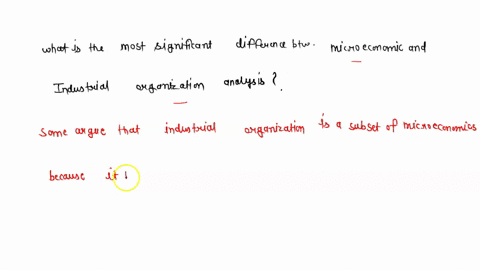 what is the most significant difference btw. microeconomic and
Industrial organization analysis ?.
Some argue that industrial organization is a subset of microeconomics
because it